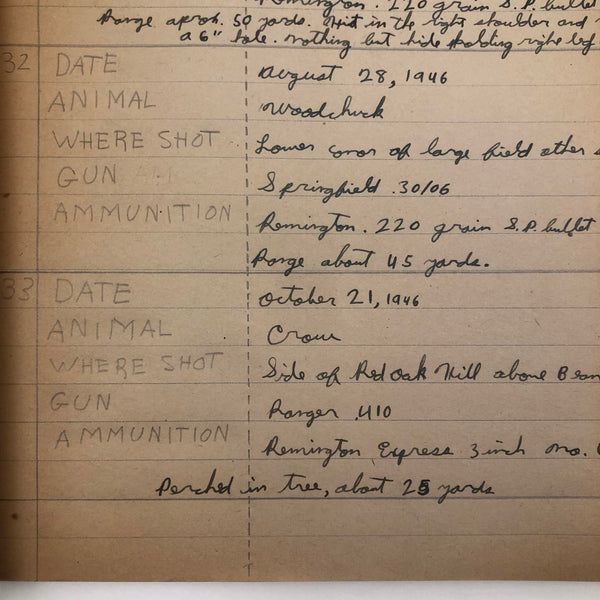 Remington. 220 grain S.P. bullet
Range aprox. 50 yards. Hit in the right shoulder and
a 6" hole. nothing but hide holding right leg
32 DATE August 28, 1946
ANIMAL Woodchuck
WHERE SHOT Lower cornor of large field other
GUN Springfield .30/06
AMMUNITION Remington. 220 grain S.P. bullet
Range about 45 yards.
33 DATE October 21, 1946
ANIMAL Crow
WHERE SHOT Side of Red Oak Hill above
GUN Ranger .410
AMMUNITION Remington Express 3 inch no.
Perched in tree, about 25 yards